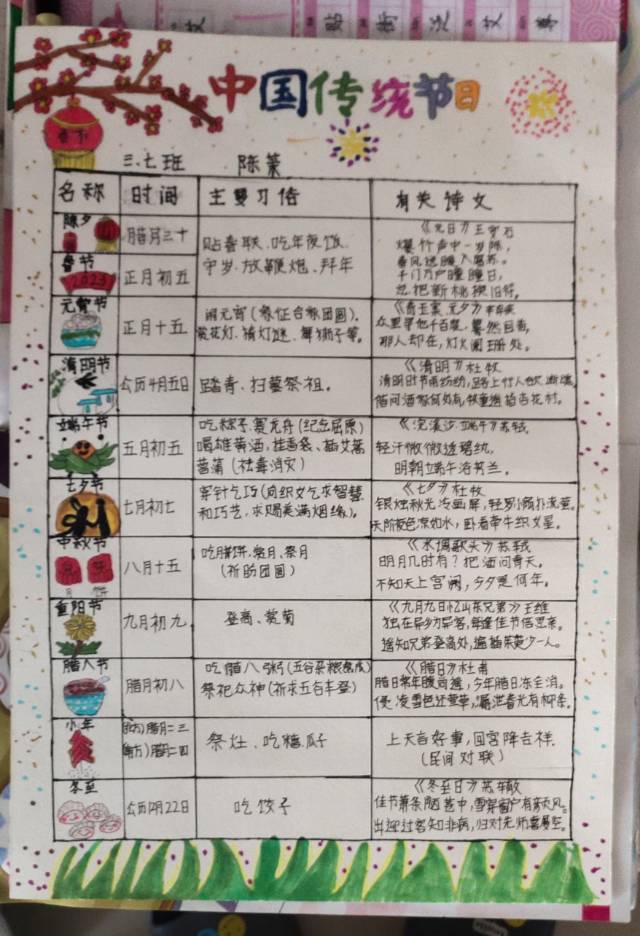 中国传统节日
春节
三.七班 陈策
名称 时间 主要习俗 有关诗文
除夕
腊月三十
贴春联、吃年夜饭、
守岁、放鞭炮、拜年
春节
2023
正月初五
《元日》王安石
爆竹声中一岁除,
春风送暖入屠苏。
千门万户曈曈日,
总把新桃换旧符。
元宵节
正月十五
闹元宵(象征合家团圆)、
赏花灯、猜灯谜、舞狮子等。
《青玉案 元夕》辛弃疾
众里寻他千百度,蓦然回首,
那人却在,灯火阑珊处。
清明节
公历4月五日
踏青、扫墓祭祖。
《清明》杜牧
清明时节雨纷纷,路上行人欲断魂
借问酒家何处有,牧童遥指杏花村。
端午节
五月初五
吃粽子、赛龙舟(纪念屈原)
喝雄黄酒、挂香袋、插艾蒿
菖蒲(祛毒消灾)
《浣溪沙.端午》苏轼
轻汗微微透碧纨,
明朝端午浴芳兰。
七夕节
七月初七
穿针乞巧(向织女乞求智慧
和巧艺、求赐美满姻缘)。
《七夕》杜牧
银烛秋光冷画屏,轻罗小扇扑流萤。
天阶夜色凉如水,卧看牵牛织女星。
中秋节
八月十五
吃月饼、赏月、祭月
(祈盼团圆)
《水调歌头》苏轼
明月几时有?把酒问青天。
不知天上宫阙,今夕是何年。
重阳节
九月初九
登高、赏菊
《九月九日忆山东兄弟》王维
独在异乡为异客,每逢佳节倍思亲。
遥知兄弟登高处,遍插茱萸少一人。
腊八节
腊月初八
吃腊八粥(五谷杂粮熬成)
祭祀众神(祈求五谷丰登)
《腊日》杜甫
腊日常年暖尚遥,今年腊日冻全消。
侵凌雪色还萱草,漏泄春光有柳条。
小年
(北方)腊月二三
(南方)腊月二四
祭灶、吃糖瓜子
上天言好事,回宫降吉祥.
(民间对联)
冬至
公历12月22日
吃饺子
《冬至日》苏辙
佳节萧条陋巷中,雪穿窗户有颜风。
出迎过客知非病,归对先师喜屡空。